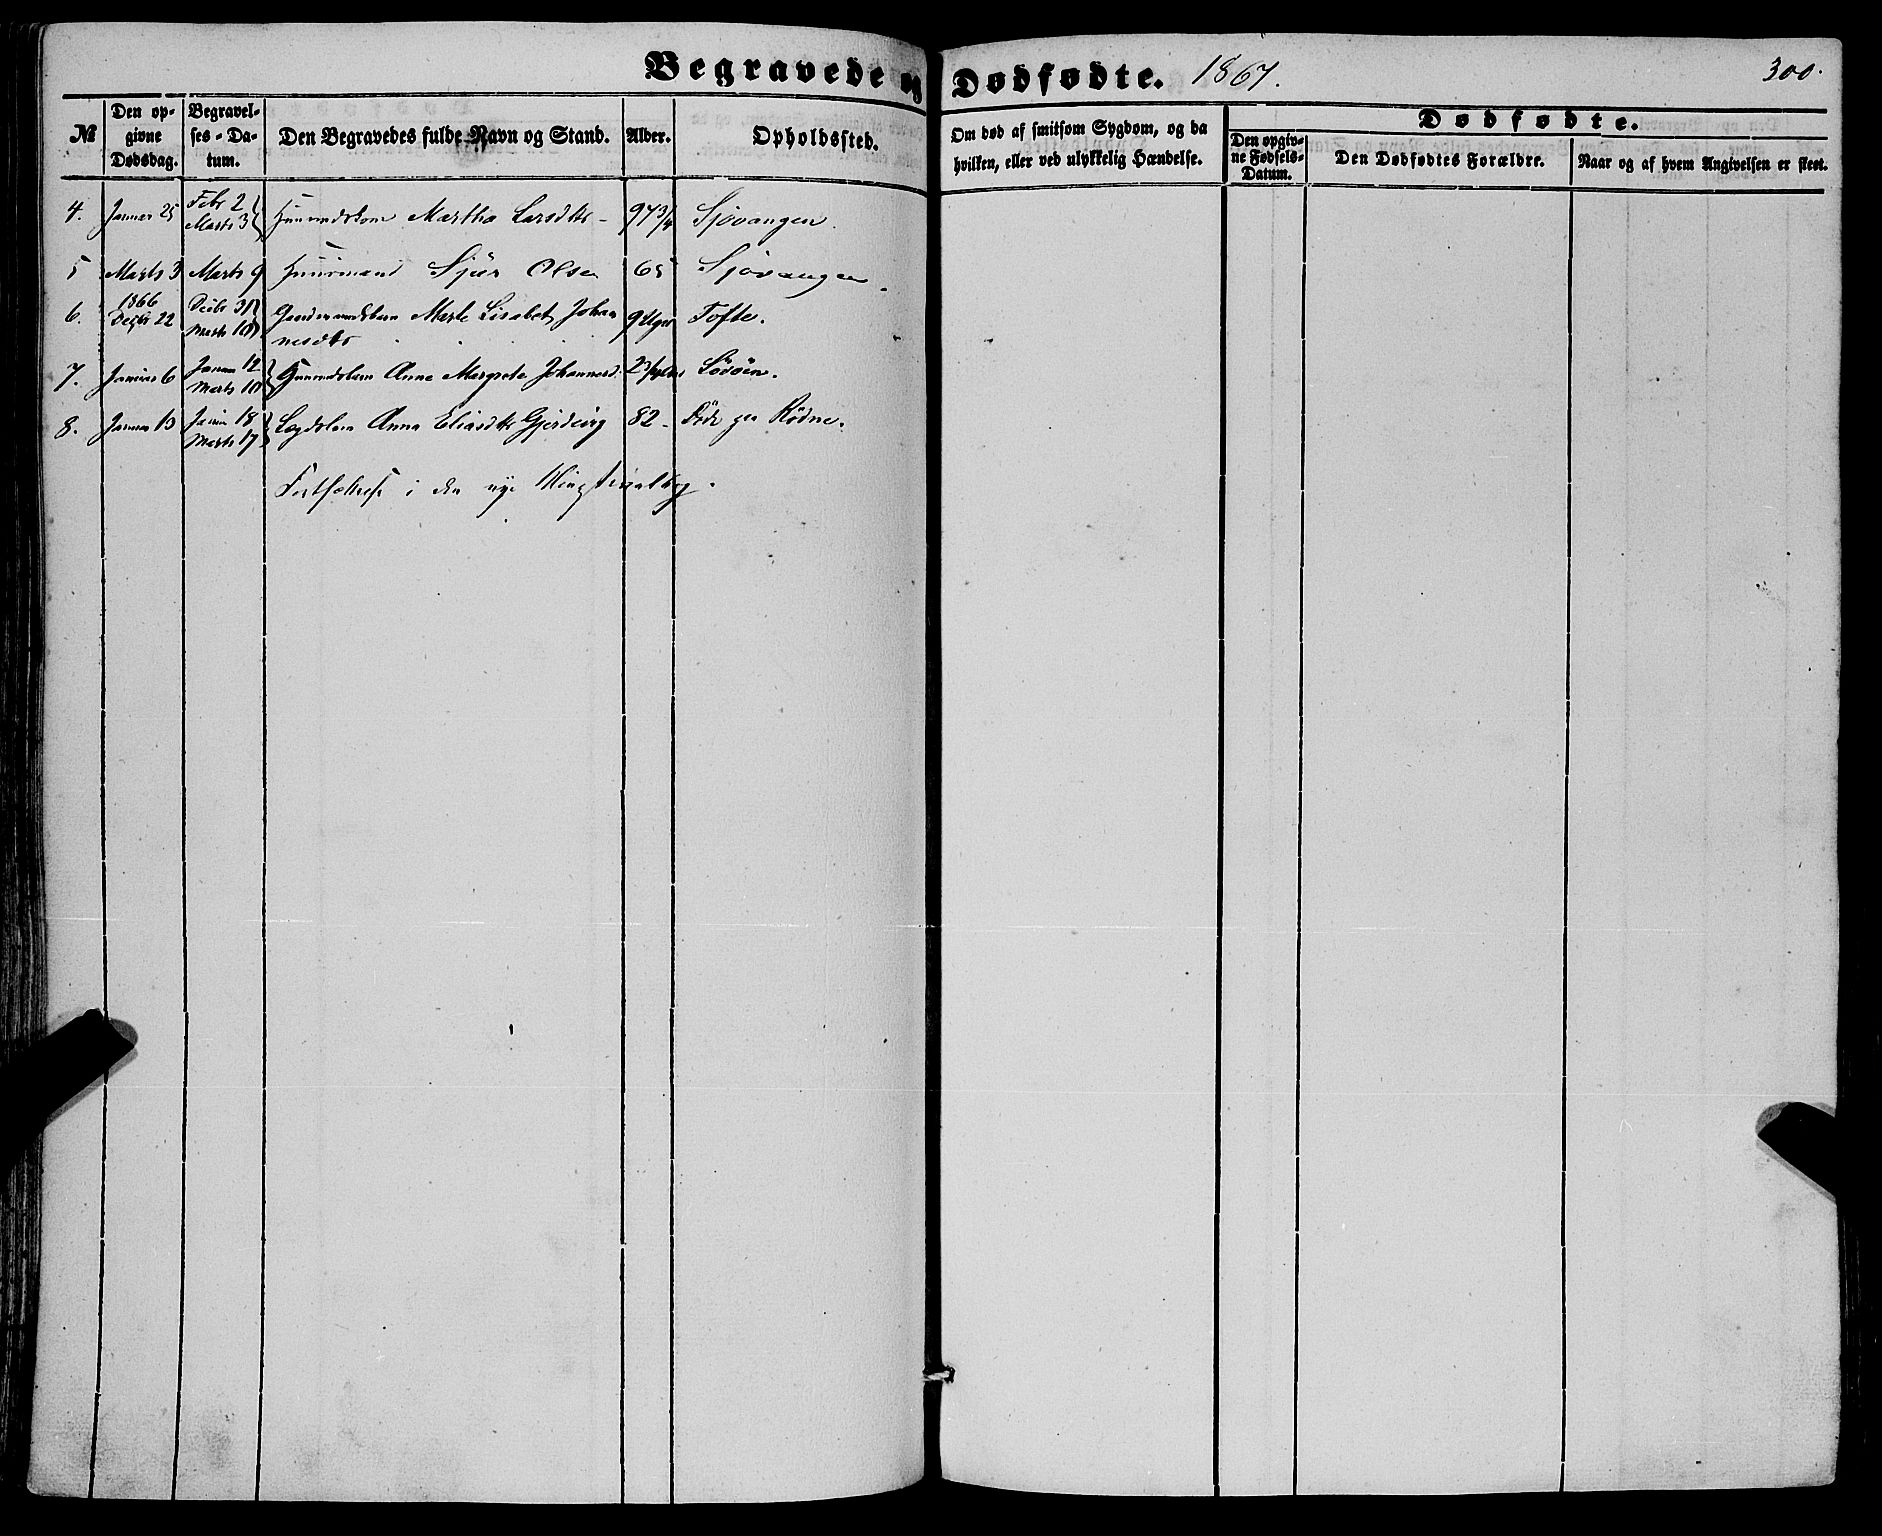 Begravede og Dødfødte. 1867. 300.
№ Den opgivne Dødsdag. Begravelses-Datum. Den Begravedes fulde Navn og Stand. Alder. Opholdssted. Om død af smitsom Sygdom, og da hvilken, eller ved ulykkelig Hændelse. Dødfødte.
Den opgivne Fødsels-Datum. Den Dødfødtes Forældre. Naar og af hvem Angivelsen er skeet.
4. Januar 25 Febr 2 Marts 3 Martha Larsdtr 97 3/4 Sjovangen.
5 Marts 3 Marts 9 Huusmand Sjur Olsen 65 Sjovangen
6. 1866 Decbr 22 Decbr 31 Marts 10 Gaardmandsbarn Marte Lisabet Johannesdtr 9 Uger Tofte.
7. Januar 6 Januar 12 Marts 10 Anna Margrete Johannesd. Løvøen.
8. Januar 13 Januar 18 Marts 17 Anna Eliasdtr 82 Rødne.
Fortsættes i den nye Ministerialbog.